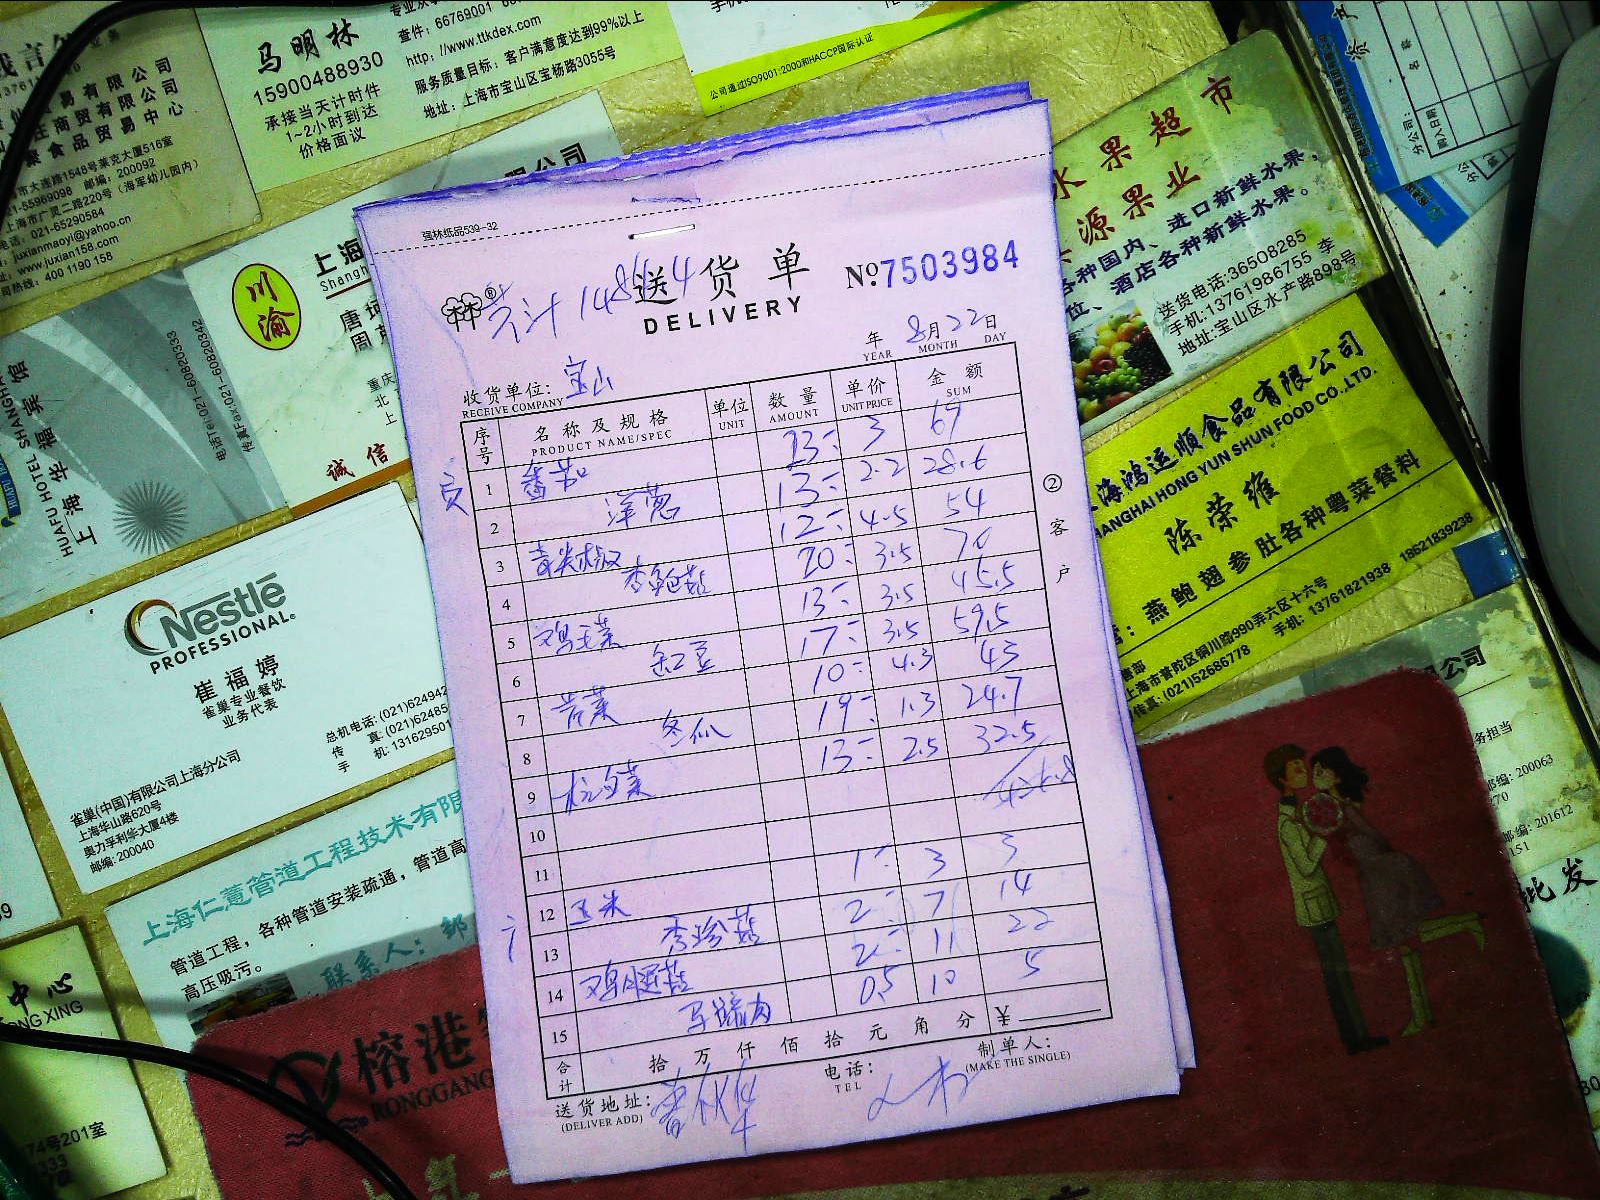 马明林
15900488930
承接当天计时件
1~2小时到达
价格面议
查件: 66769001
http://www.ttkdex.com
服务质量目标: 客户满意度达到99%以上
地址: 上海市宝山区宝杨路3055号
公司通过ISO9001:2000和HACCP国际认证
贸易有限公司
庄商贸有限公司
食品贸易中心
市大连路1548号莱克大厦516室
21-55969098 邮编: 200092
上海市广灵二路220号 (海军幼儿园内)
电话: 021-65290584
juxianmaoyi@yahoo.cn
www.juxian158.com
热线: 400 1190 158
川渝
上海
诚信
HUAFU HOTEL SHANGHAI
上海华福宾馆
电话Tel(021)-60820333
传真Fax:021-60820342
Nestlé
PROFESSIONAL®
崔福婷
雀巢专业餐饮
业务代表
总机电话: (021)624942
传 真: (021)62485
手 机: 13162950
雀巢(中国)有限公司上海分公司
上海华山路620号
奥力孚利华大厦4楼
邮编: 200040
上海仁薏管道工程技术有限
管道工程, 各种管道安装疏通, 管道高
高压吸污。
联系人:
强林纸品539-32
共计
送货单
DELIVERY
№7503984
年 8月22日
YEAR MONTH DAY
收货单位: 宝山
RECEIVE COMPANY
序号 名称及规格 单位 数量 单价 金额
PRODUCT NAME/SPEC UNIT AMOUNT UNIT PRICE SUM
1 番茄 23 3 69
2 洋葱 13 2.2 28.6
3 青尖椒 12 4.5 54
4 杏鲍菇 20 3.5 70
5 鸡毛菜 13 3.5 45.5
6 豇豆 17 3.5 59.5
7 苦菜 10 4.3 43
8 冬瓜 19 1.3 24.7
9 13 2.5 32.5
426.8
10
11
12 玉米 1 3 3
13 秀珍菇 2 7 14
14 鸡腿菇 2 11 22
15 马蹄肉 0.5 10 5
合计 拾 万 仟 佰 拾 元 角 分 ¥
送货地址:
(DELIVER ADD)
电话:
TEL
制单人:
(MAKE THE SINGLE)
②客户
水果超市
源果业
各种国内、进口新鲜水果,
位、酒店各种新鲜水果。
送货电话:36508285
手机:13761986755 李
地址:宝山区水产路898号
海鸿运顺食品有限公司
SHANGHAI HONG YUN SHUN FOOD CO.,LTD.
陈荣维
燕鲍翅参肚各种粤菜餐料
上海市普陀区铜川路990弄六区十六号
传真: (021)52686778
手机: 13761821938 18621839238
务担当
邮编: 200063
邮编: 201612
批发
榕港
RONGGANG
中心
74号201室